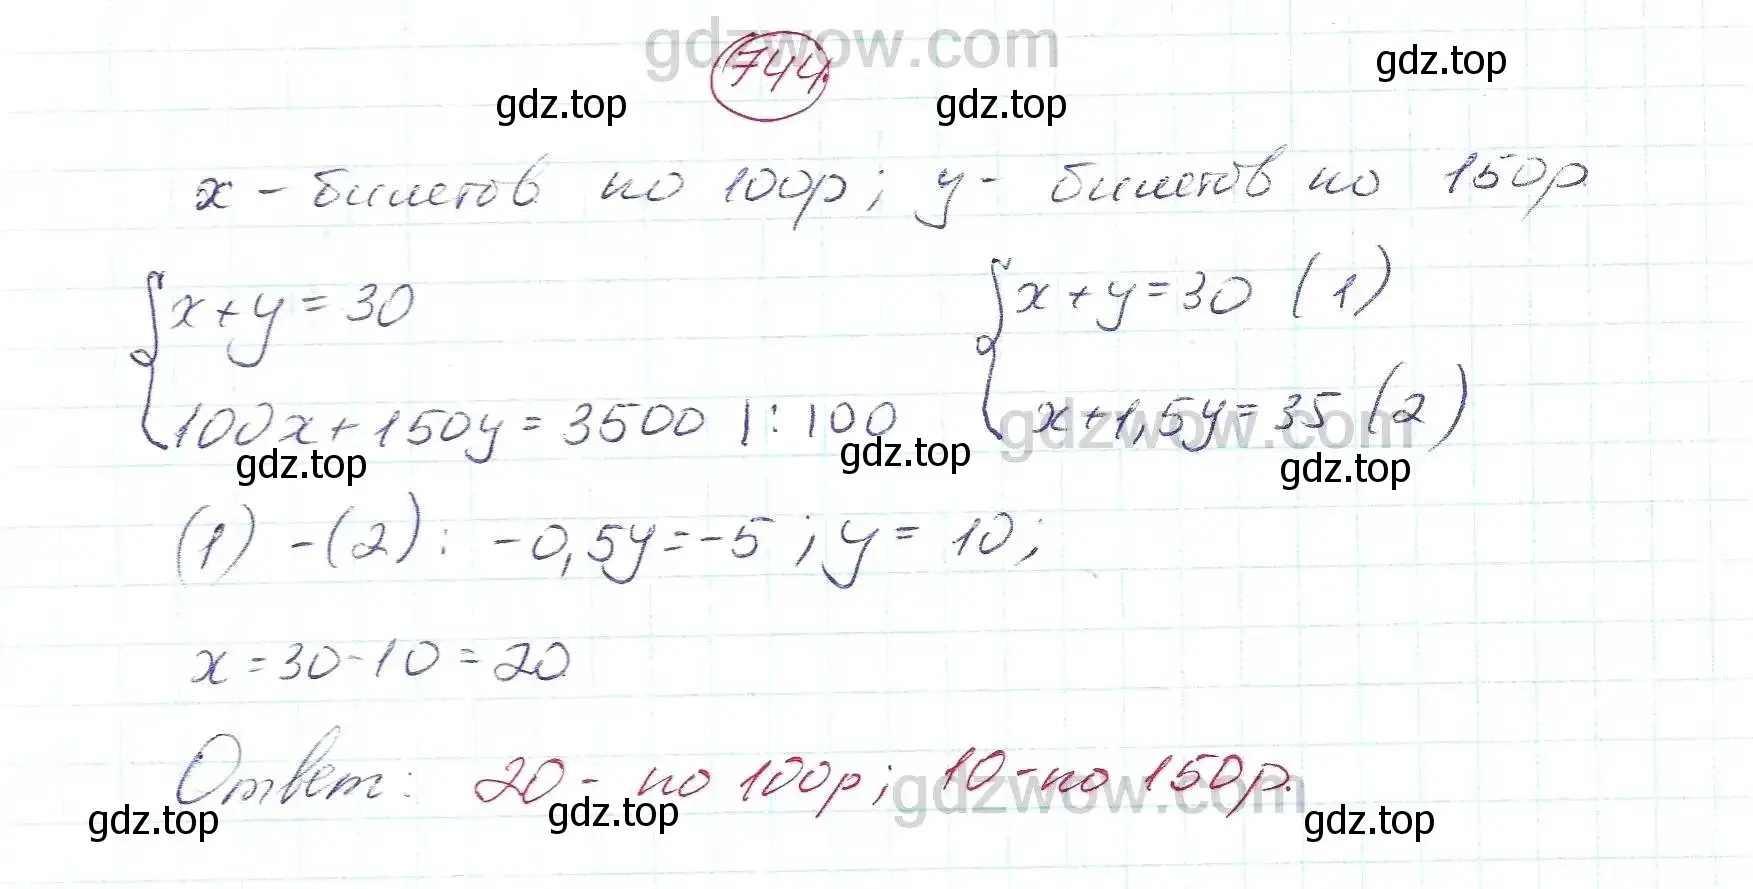 gdzwow.com
744.
gdz.top
gdz.top gdz.top
x - билетов по 100р; y - билетов по 150р
{x+y=30 {x+y=30 (1)
100x+150y=3500 |:100 x+1,5y=35 (2)
gdzwow.com
gdz.top gdz.top gdz.top
(1) -(2): -0,5y=-5; y= 10;
x=30-10=20
Ответ: 20- по 100р; 10-по 150р.
gdzwow.com
gdz.top gdz.top gdz.top